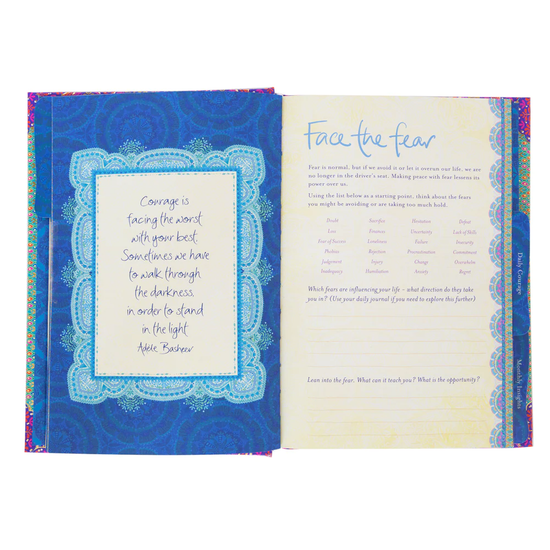 Courage is
facing the worst
with your best.
Sometimes we have
to walk through
the darkness,
in order to stand
in the light
Adele Basheer
Face the fear
Fear is normal, but if we avoid it or let it overrun our life, we are
no longer in the driver's seat. Making peace with fear lessens its
power over us.
Using the list below as a starting point, think about the fears
you might be avoiding or are taking too much hold.
Doubt Sacrifice Hesitation Defeat
Loss Finances Uncertainty Lack of Skills
Fear of Success Loneliness Failure Insecurity
Phobias Rejection Procrastination Commitment
Judgement Injury Change Overwhelm
Inadequacy Humiliation Anxiety Regret
Which fears are influencing your life – what direction do they take
you in? (Use your daily journal if you need to explore this further)
Lean into the fear. What can it teach you? What is the opportunity?
Daily Courage
Monthly Insights